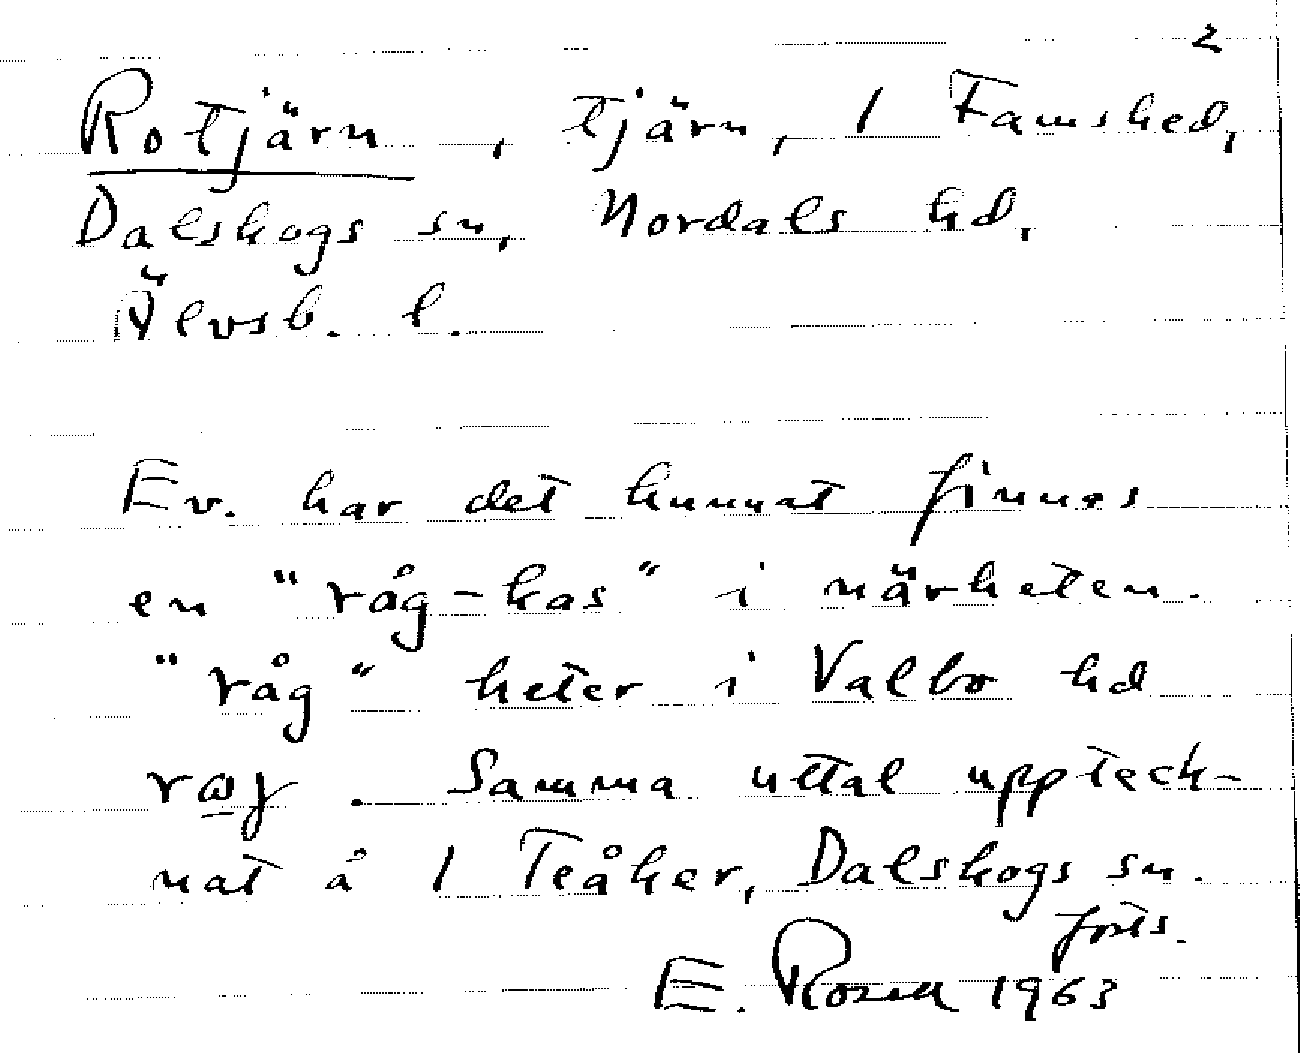 2
Rotjärn, tjärn, 1 Famshed,
Dalskogs sn, Nordals hd,
Älvsb. l.
Ev. har det kunnat finnas
en "råg-kas" i närheten.
"råg" heter i Valbo hd
. Samma uttal uppteck-
nat å 1 Teåker, Dalskogs sn.
forts.
E. Rosell 1963